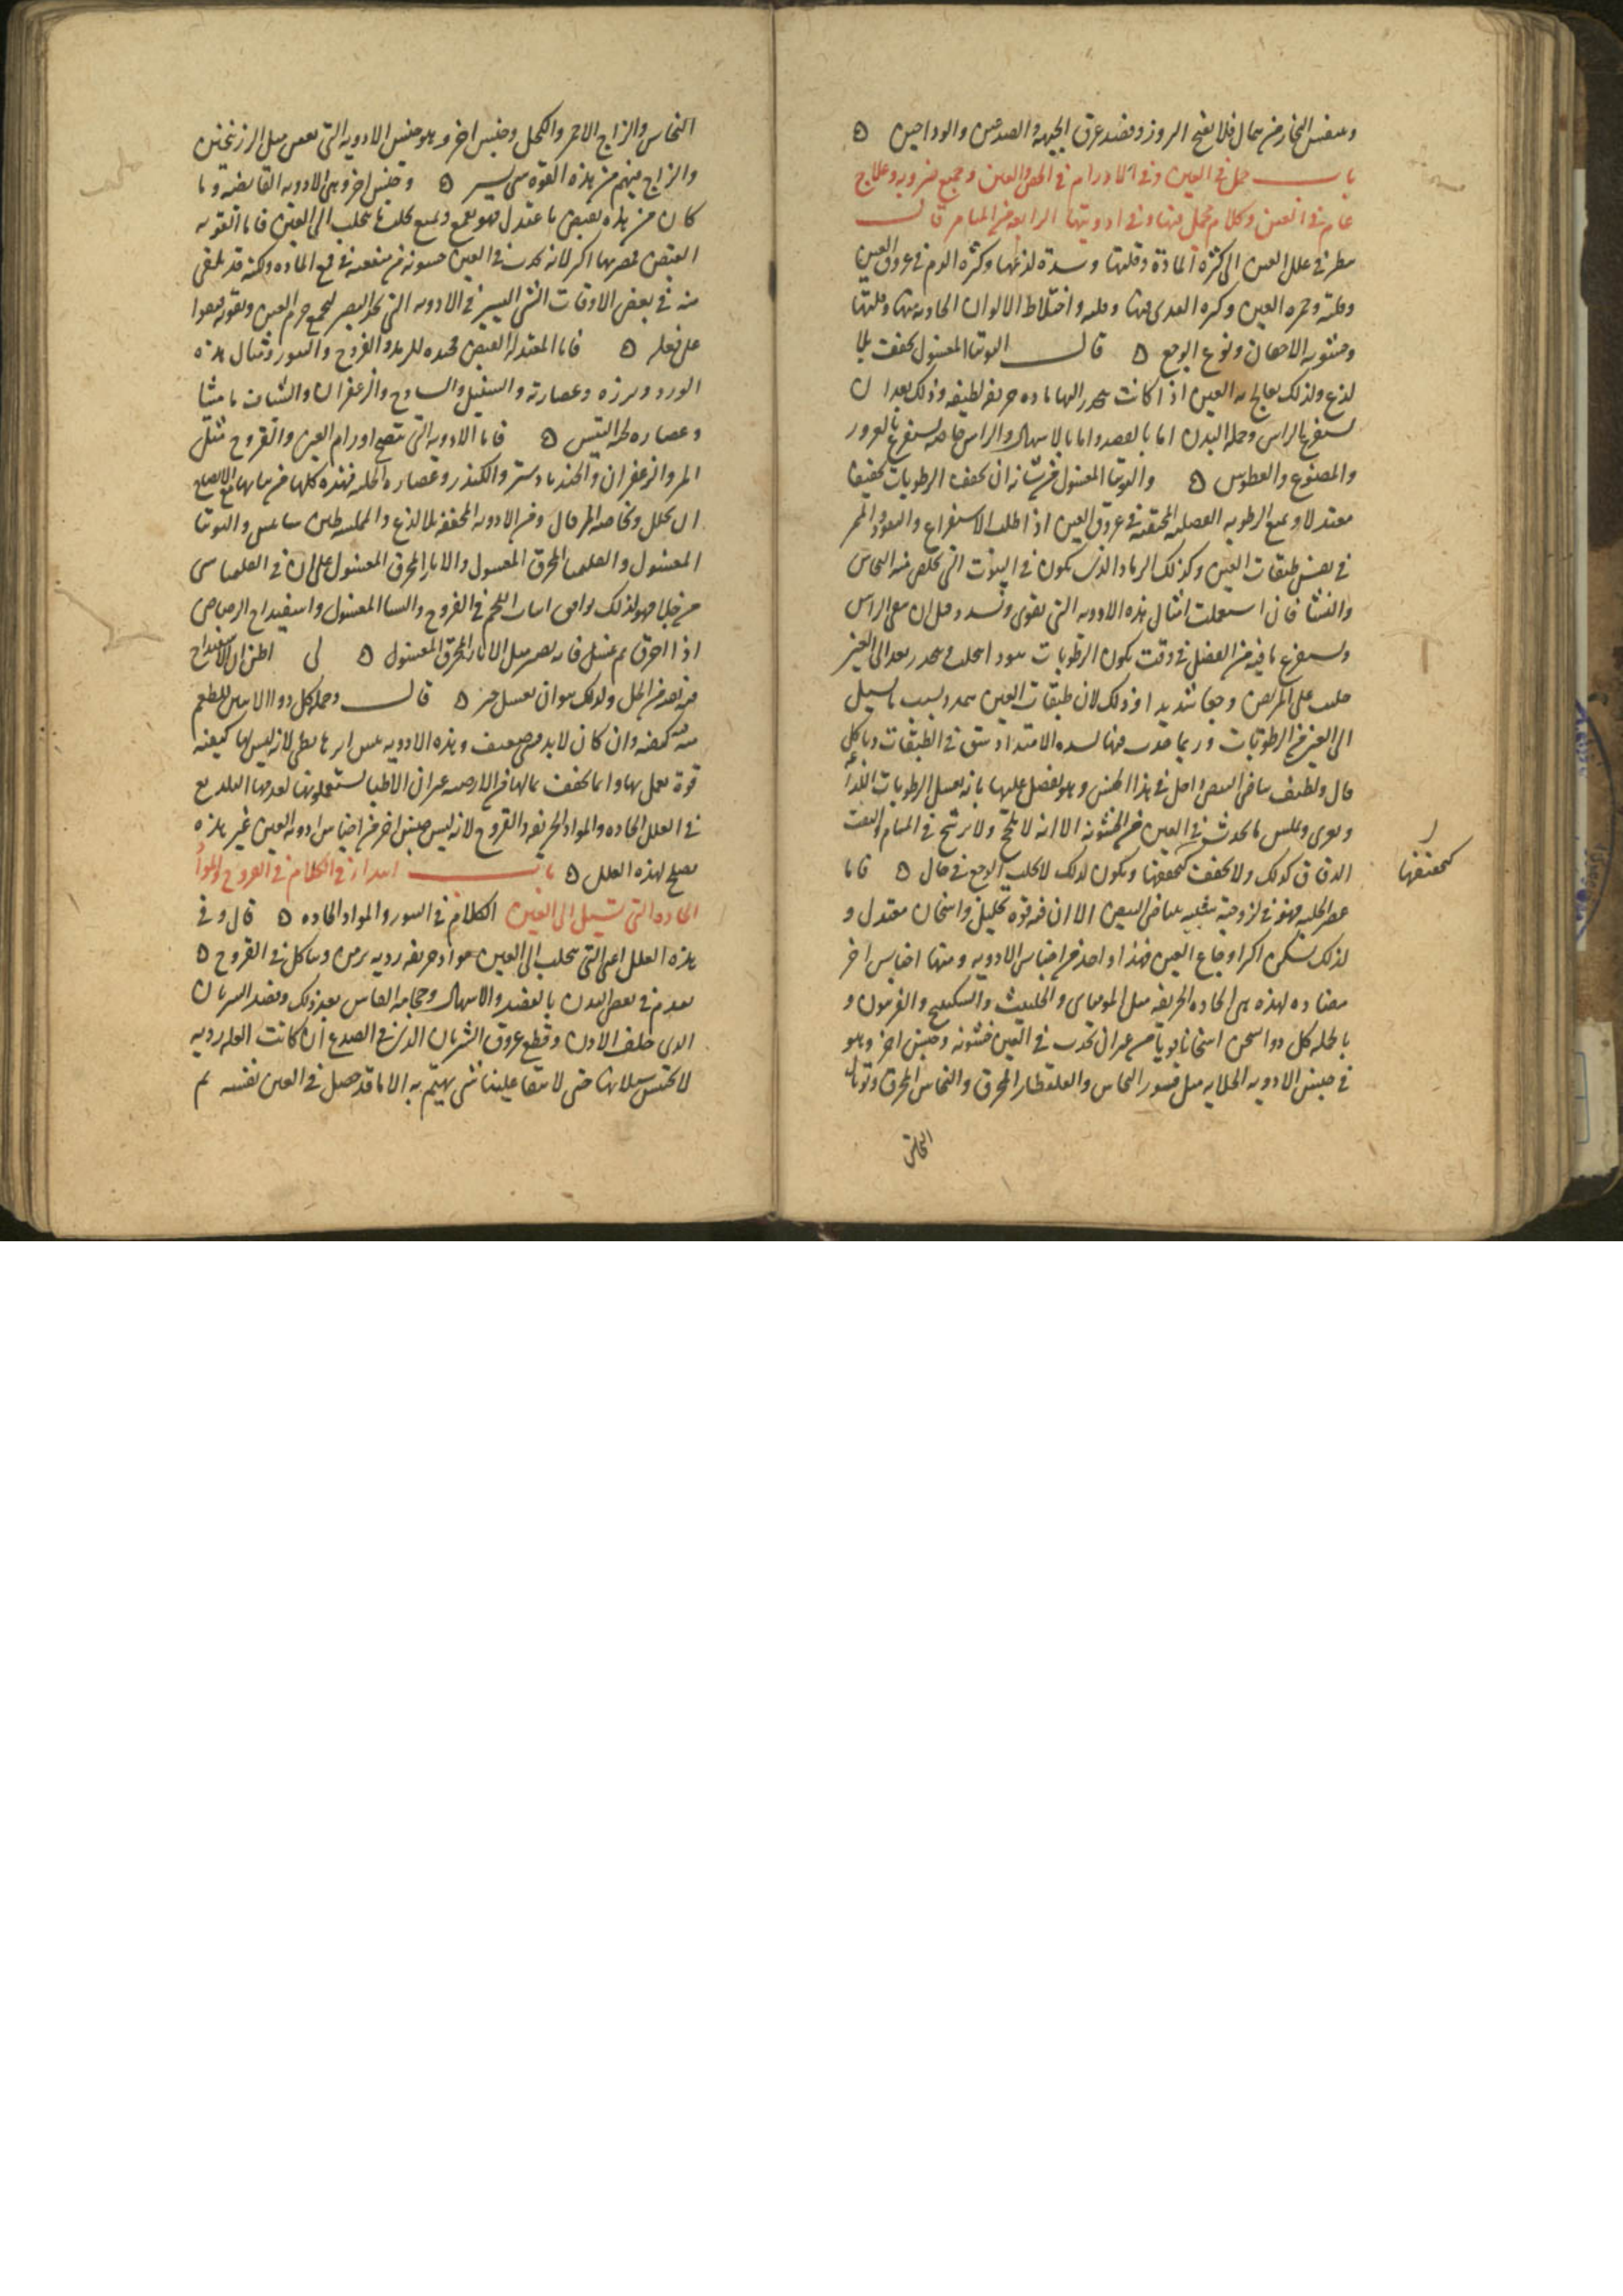 وعطس البخار من حال فلا يفتح الروز وفصد عرق الجبهه والصدغين والوداجين ه
باب جمل في العين وفي الاورام في الجفن والعين وجميع ضروبه وعلاج
عام في العين وكلام مجمل فيها وفي ادويتها الرابعه من الميامر قال
ينظر في علل العين الى كثرة المادة وقلتها وشدة لذعها وكثره الدم في عروق العين
وقلته وحمره العين وكثره القذى فيها وقلته واختلاط الالوان الحادثه فيها وقلتها
وخشونه الاجفان ونوع الوجع ه قال التوتيا المغسول يجفف بلا
لذع ولذلك يعالج به العين اذا كانت تنحدر اليها ماده حريفه لطيفه وذلك بعد ان
يستفرغ الراس وجمله البدن اما بالفصد واما بالاسهال والراس خاصه يستفرغ بالغرور
والمضوغ والعطوس ه والتوتيا المغسول من شانه ان يجفف الرطوبات تجفيفا
معتدلا ويمنع الرطوبه الفضليه المحتقنه في عروق العين اذا طلبت الاستفراغ والنفوذ والممر
في نفس طبقات العين وكذلك الرماد الذي يكون في البيوت التي يخلص فيه النحاس
والنشا فان استعملت امثال هذه الادويه التي تغرى وتسدد قبل ان ينقى الراس
ويستفرغ ما فيه من الفضل في وقت يكون الرطوبات بعد تتحلب وتنحدر بعد الى العين
جلبت على المريض وجعا شديدا وذلك لان طبقات العين تتمدد بسبب ما يسيل
الى العين من الرطوبات وربما حدث فيها لشده الامتداد شق في الطبقات وتاكل
قال ولطيف بياض البيض داخل في هذا الجنس وهو يفضل عليها بانه يغسل الرطوبات اللذاعه
ويغرى ويملس ما يحدث في العين من الخشونه الا انه لا يلحج ولا يرشح في المسام
الدقاق كذلك ولا يجفف كتجفيفها ويكون لذلك لا يجلب الوجع في حال ه فاما
عصير الحلبه فهو في لزوجته شبيه ببياض البيض الا ان فيه قوه تحليل واسخان معتدل و
لذلك يسكن اكثر اوجاع العين فهذا واحد من اجناس الادويه ومنها اجناس اخر
مضاده لهذه هي الحاده الحريفه مثل الموميائي والحلتيت والسكبينج والفربيون و
بالجمله كل دوا يسخن اسخانا قويا من غير ان يحدث في العين خشونه وجنس اخر وهو
في جنس الادويه الجلايه مثل قشور النحاس والقلقطار المحرق والنحاس المحرق وتوبال
النحاس
كتجفيفها
النحاس والزاج الاحمر والكحل وجنس اخر وهو جنس الادويه التي تعفن مثل الزرنيخين
والزاج فيهم من هذه القوه شي يسير ه وجنس اخر وهي الادويه القابضه وما
كان من هذه يقبض باعتدال فهو يقمع ويمنع تحلب ما يتحلب الى العين فاما القويه
القبض فضررها اكثر لانه يحدث في العين خشونه من منفعته في قمع الماده ولكنه قد يلقى
منه في بعض الاوقات الشي اليسير في الادويه التي تحد البصر ليجمع جرم العين ويقويه فيقوا
على فعله ه فاما المعتدله القبض فجيده للرمد والقروح والبثور ومثال هذه
الورد وبزره وعصارته والسنبل والسادج والزعفران والشياف ماميثا
وعصاره لحيه التيس ه فاما الادويه التي تنضج اورام العين والقروح مثل
المر والزعفران والجندبادستر والكندر وعصاره الحلبه فهذه كلها من شانها مع الانضاج
ان تحلل وخاصه المر قال ومن الادويه المجففه بلا لذع والمملسه طين ساموس والتوتيا
المغسول والقليميا المحرق المغسول والابار المحرق المغسول على ان في القليميا شي
من جلا فهو لذلك يوافق انبات اللحم في القروح والنشا المغسول واسفيداج الرصاص
اذا احرق ثم غسل فانه يصير مثل الابار المحرق المغسول ه لى اظن ان الاسفيداج
فيه بعد من الخل ولذلك هو ان يغسل خير ه قال وجمله كل دوا لا يتبين للطعم
فيه كيفيه وان كان لا بد فضعيف وهذه الادويه ليس ابراها يبطى لانه ليس لها كيفيه
قويه تعمل بها وانما تجفف بما لها من الارضيه غير ان الاطبا يستعملونها لبعدها من التلذيع
في العلل الحاده والمواد الحريفه والقروح لانه ليس جنس اخر من اجناس ادويه العين غير هذه
يصلح لهذه العلل ه باب ابتداء في الكلام في القروح والمواد
الحاده التي تسيل الى العين الكلام في البثور والمواد الحاده ه قال وفي
هذه العلل اعني التي تتحلب الى العين مواد حريفه رديه يزمن ويتاكل في القروح ه
يقدم في نفض البدن بالفصد والاسهال وحجامه الفاس بعد ذلك وفصد الشريان
الذي خلف الاذن وقطع عروق الشريان الذي في الصدغ ان كانت العله رديه
لا يحتبس سيلانها حتى لا يبقا علينا شي يهتم به الا ما قد حصل في العين نفسه ثم